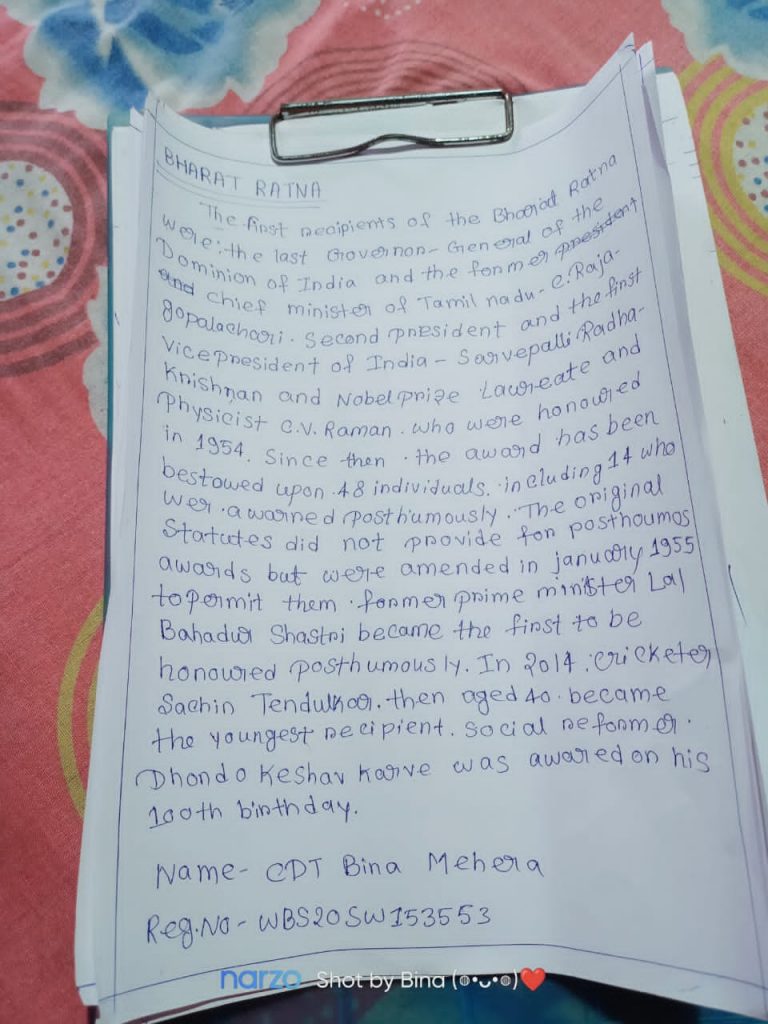 BHARAT RATNA
The first recipients of the Bharat Ratna
were: the last Governor-General of the
Dominion of India and the former president
and chief minister of Tamil nadu - C. Raja-
gopalachari. Second president and the first
Vice president of India - Sarvepalli Radha-
Krishnan and Nobel prize Laureate and
Physicist C.V. Raman. who were honoured
in 1954. Since then. the award has been
bestowed upon 48 individuals. including 14 who
wer awarned posthumously. The original
Statutes did not provide for posthoumos
awards but were amended in january 1955
to permit them. former prime minister Lal
Bahadur Shastri became the first to be
honoured posthumously. In 2014. cricketer
Sachin Tendulkar. then aged 40. became
the youngest recipient. Social reformer.
Dhondo Keshav Karve was awared on his
100th birthday.
Name- CDT Bina Mehera
Reg.No - WBS20SW153553
narzo Shot by Bina (๑•ᴗ•๑)❤️